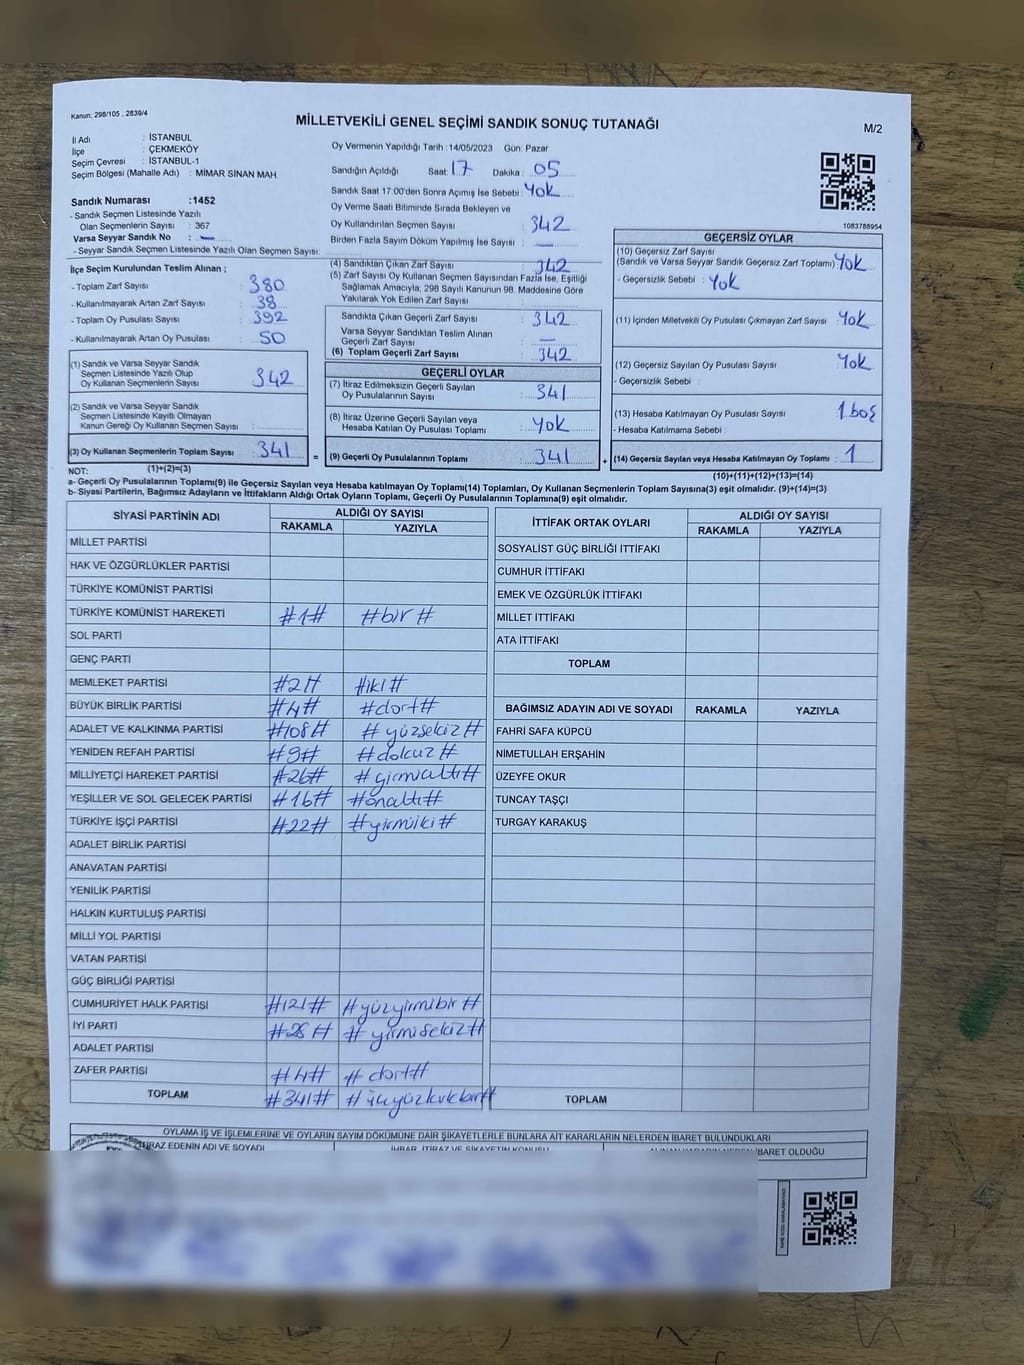 Kanun, 298/105 , 2839/4
MİLLETVEKİLİ GENEL SEÇİMİ SANDIK SONUÇ TUTANAĞI
M/2
İl Adı : İSTANBUL
İlçe : ÇEKMEKÖY
Seçim Çevresi : İSTANBUL-1
Seçim Bölgesi (Mahalle Adı) : MİMAR SİNAN MAH.
Sandık Numarası :1452
- Sandık Seçmen Listesinde Yazılı
Olan Seçmenlerin Sayısı : 367
Varsa Seyyar Sandık No : —
- Seyyar Sandık Seçmen Listesinde Yazılı Olan Seçmen Sayısı:
İlçe Seçim Kurulundan Teslim Alınan ;
- Toplam Zarf Sayısı : 380
- Kullanılmayarak Artan Zarf Sayısı : 38
- Toplam Oy Pusulası Sayısı : 392
- Kullanılmayarak Artan Oy Pusulası : 50
(1) Sandık ve Varsa Seyyar Sandık
Seçmen Listesinde Yazılı Olup
Oy Kullanan Seçmenlerin Sayısı : 342
(2) Sandık ve Varsa Seyyar Sandık
Seçmen Listesinde Kayıtlı Olmayan
Kanun Gereği Oy Kullanan Seçmen Sayısı :
(3) Oy Kullanan Seçmenlerin Toplam Sayısı : 341
Oy Vermenin Yapıldığı Tarih :14/05/2023 Gün: Pazar
Sandığın Açıldığı Saat: 17 Dakika : 05
Sandık Saat 17:00'den Sonra Açımış İse Sebebi : Yok
Oy Verme Saati Bitiminde Sırada Bekleyen ve
Oy Kullandırılan Seçmen Sayısı : 342
Birden Fazla Sayım Döküm Yapılmış İse Sayısı : —
(4) Sandıktan Çıkan Zarf Sayısı : 342
(5) Zarf Sayısı Oy Kullanan Seçmen Sayısından Fazla İse, Eşitliği
Sağlamak Amacıyla; 298 Sayılı Kanunun 98. Maddesine Göre
Yakılarak Yok Edilen Zarf Sayısı :
Sandıkta Çıkan Geçerli Zarf Sayısı : 342
Varsa Seyyar Sandıktan Teslim Alınan
Geçerli Zarf Sayısı : —
(6) Toplam Geçerli Zarf Sayısı : 342
GEÇERLİ OYLAR
(7) İtiraz Edilmeksizin Geçerli Sayılan
Oy Pusulalarının Sayısı : 341
(8) İtiraz Üzerine Geçerli Sayılan veya
Hesaba Katılan Oy Pusulası Toplamı : Yok
= (9) Geçerli Oy Pusulalarının Toplamı : 341
1083788954
GEÇERSİZ OYLAR
(10) Geçersiz Zarf Sayısı
(Sandık ve Varsa Seyyar Sandık Geçersiz Zarf Toplamı) : Yok
- Geçersizlik Sebebi : Yok
(11) İçinden Milletvekili Oy Pusulası Çıkmayan Zarf Sayısı : Yok
(12) Geçersiz Sayılan Oy Pusulası Sayısı : Yok
- Geçersizlik Sebebi :
(13) Hesaba Katılmayan Oy Pusulası Sayısı : 1 boş
- Hesaba Katılmama Sebebi :
+ (14) Geçersiz Sayılan veya Hesaba Katılmayan Oy Toplamı : 1
NOT: (1)+(2)=(3)
(10)+(11)+(12)+(13)=(14)
a- Geçerli Oy Pusulalarının Toplamı(9) ile Geçersiz Sayılan veya Hesaba katılmayan Oy Toplamı(14) Toplamları, Oy Kullanan Seçmenlerin Toplam Sayısına(3) eşit olmalıdır. (9)+(14)=(3)
b- Siyasi Partilerin, Bağımsız Adayların ve İttifakların Aldığı Ortak Oyların Toplamı, Geçerli Oy Pusulalarının Toplamına(9) eşit olmalıdır.
SİYASİ PARTİNİN ADI ALDIĞI OY SAYISI
RAKAMLA YAZIYLA
MİLLET PARTİSİ
HAK VE ÖZGÜRLÜKLER PARTİSİ
TÜRKİYE KOMÜNİST PARTİSİ
TÜRKİYE KOMÜNİST HAREKETİ #1# #bir#
SOL PARTİ
GENÇ PARTİ
MEMLEKET PARTİSİ #2# #iki#
BÜYÜK BİRLİK PARTİSİ #4# #dört#
ADALET VE KALKINMA PARTİSİ #108# #yüzsekiz#
YENİDEN REFAH PARTİSİ #9# #dokuz#
MİLLİYETÇİ HAREKET PARTİSİ #26# #yirmialtı#
YEŞİLLER VE SOL GELECEK PARTİSİ #16# #onaltı#
TÜRKİYE İŞÇİ PARTİSİ #22# #yirmiiki#
ADALET BİRLİK PARTİSİ
ANAVATAN PARTİSİ
YENİLİK PARTİSİ
HALKIN KURTULUŞ PARTİSİ
MİLLİ YOL PARTİSİ
VATAN PARTİSİ
GÜÇ BİRLİĞİ PARTİSİ
CUMHURİYET HALK PARTİSİ #121# #yüzyirmibir#
İYİ PARTİ #28# #yirmisekiz#
ADALET PARTİSİ
ZAFER PARTİSİ #4# #dört#
TOPLAM #341# #üçyüzkırkbir#
İTTİFAK ORTAK OYLARI ALDIĞI OY SAYISI
RAKAMLA YAZIYLA
SOSYALİST GÜÇ BİRLİĞİ İTTİFAKI
CUMHUR İTTİFAKI
EMEK VE ÖZGÜRLÜK İTTİFAKI
MİLLET İTTİFAKI
ATA İTTİFAKI
TOPLAM
BAĞIMSIZ ADAYIN ADI VE SOYADI RAKAMLA YAZIYLA
FAHRİ SAFA KÜPCÜ
NİMETULLAH ERŞAHİN
ÜZEYFE OKUR
TUNCAY TAŞÇI
TURGAY KARAKUŞ
TOPLAM
OYLAMA İŞ VE İŞLEMLERİNE VE OYLARIN SAYIM DÖKÜMÜNE DAİR ŞİKAYETLERLE BUNLARA AİT KARARLARIN NELERDEN İBARET BULUNDUKLARI
İTİRAZ EDENİN ADI VE SOYADI İHBAR, İTİRAZ VE ŞİKAYETİN KONUSU ALINAN KARARIN NEDEN İBARET OLDUĞU